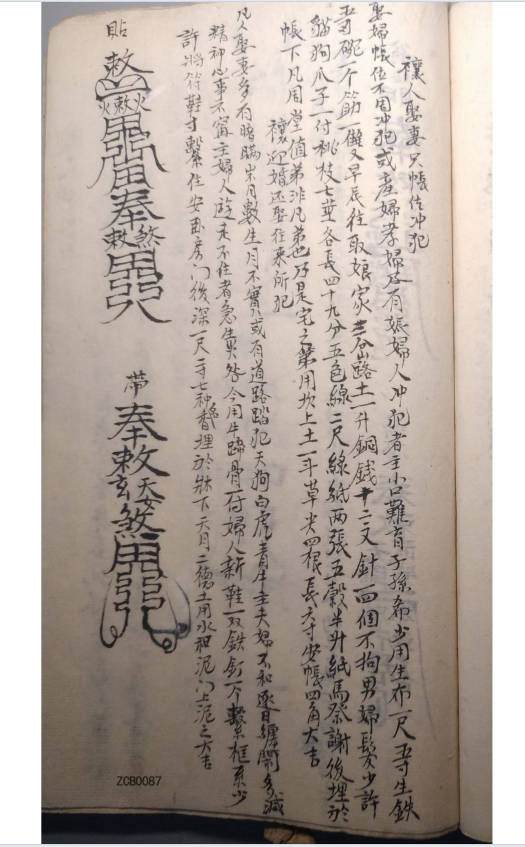 禳人娶妻只帳位冲犯
娶婦帳位不用冲犯或產婦孝婦及有娠婦人冲犯者主小口難育子孫希少用生布一尺五寸生鉄
五寸碗一个筯一雙又早辰往取娘家三谷路土一升銅錢十二文針一四個不拘男婦髮少許
貓狗爪子一付桃枝七莖各長四十九分五色線二尺線紙両張五穀半升紙馬祭謝後埋於
帳下凡用堂值弟非凡弟也乃是宅之第用坎上土一斗草尖四根長六寸安帳四角大吉
禳迎婚还娶往来所犯
凡人娶妻多有暗瞞岁月數生月不實或有道路踏犯天狗白虎青牛主夫婦不和逐日纏鬧多減
精神心事不甯主婦人遊走不住者急
今用牛蹄骨一付婦人新鞋一双鉄釘一个
許將符鞋寸繫住安
房門後深一尺二寸七种
埋於牀下天月二德土用水和泥門上泥之大吉
貼
敕
火敕火
奉
敕
煞
帶
奉敕
煞
ZCB0087